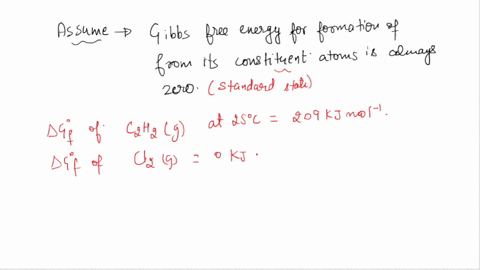 Assume → Gibbs free energy for formation of
from its constituent atoms is always
zero. (Standard state)
ΔG°f of C2H2(g) at 25°C = 209 KJ mol⁻¹.
ΔG°f of Cl2(g) = 0 KJ.